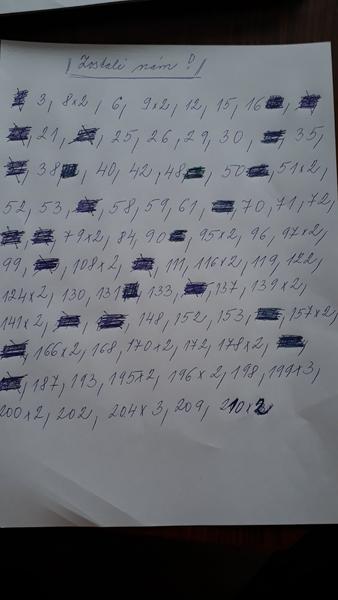 Zostali nám!
3, 8x2, 6, 9x2, 12, 15, 16
21, 25, 26, 29, 30, 35,
38, 40, 42, 48, 50, 51x2,
52, 53, 58, 59, 61, 70, 71, 72,
79x2, 84, 90, 95x2, 96, 97x2,
99, 108x2, 111, 116x2, 119, 122,
124x2, 130, 131, 133, 137, 139x2,
141x2, 148, 152, 153, 157x2,
166x2, 168, 170x2, 172, 178x2,
187, 193, 195x2, 196x2, 198, 199x3,
200x2, 202, 204x3, 209, 210x2